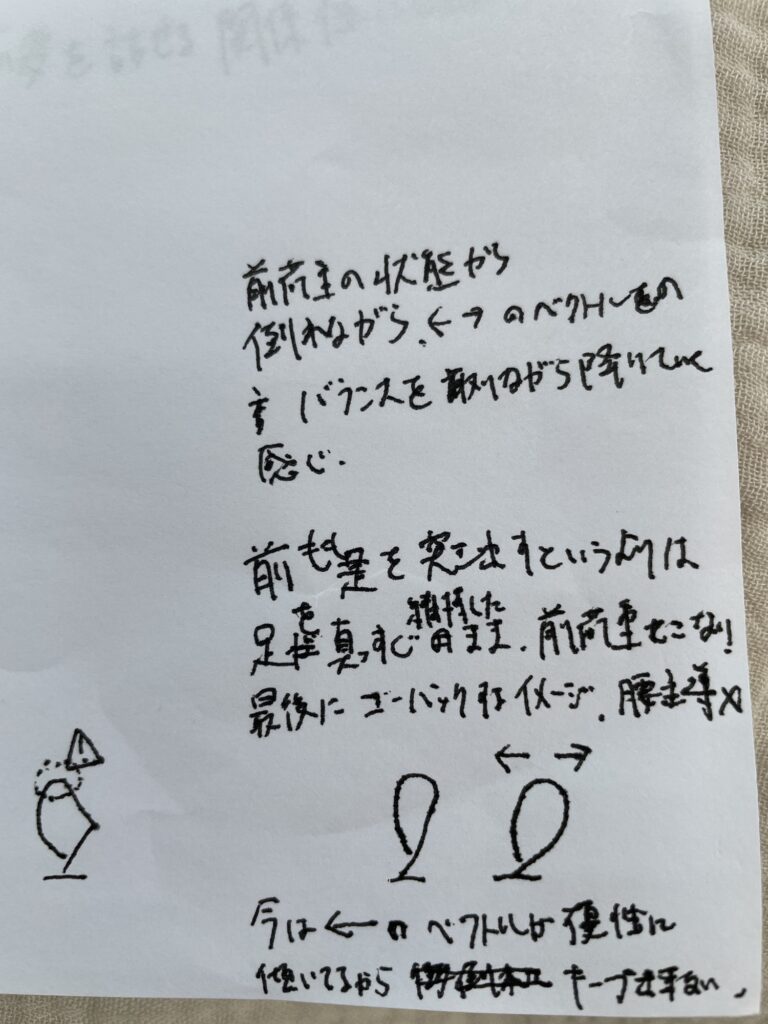 前荷重の状態から
倒れながら、← → のベクトル
バランスを取りながら降りていく
感じ.
前もも
足を突き出すというよりは
足を真っすぐ維持したまま、前荷重をこなし!
最後にゴーバックするイメージ、腰主導×
← →
今は ← のベクトルが優性に
傾いてるから キープ出来ない、